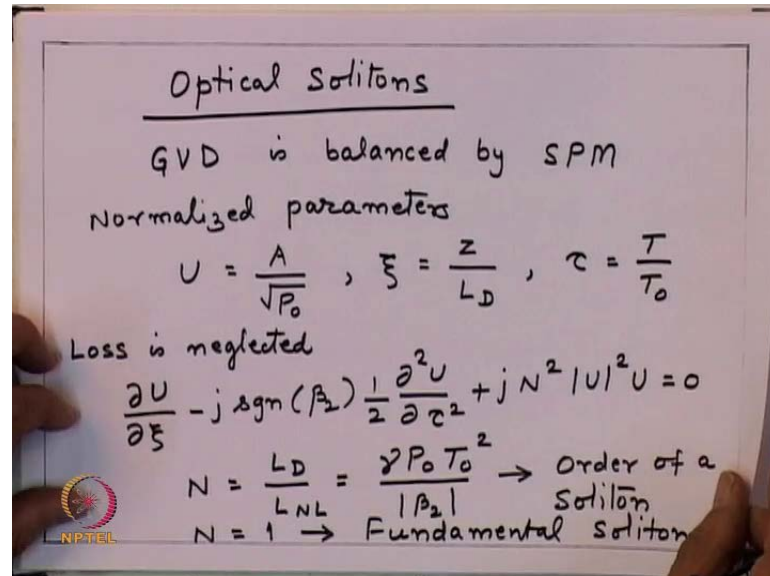 Optical Solitons
GVD is balanced by SPM
Normalized parameters
U = A/√P₀ , ξ = z/L_D , τ = T/T₀
Loss is neglected
∂U/∂ξ - j sgn(β₂) 1/2 ∂²U/∂τ² + j N² |U|² U = 0
N = L_D/L_NL = γ P₀ T₀²/|β₂| → Order of a
Soliton
N = 1 → Fundamental Soliton
NPTEL